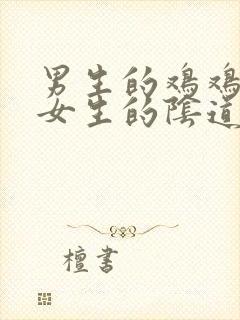 男生的鸡鸡
女生的陰道
檀書